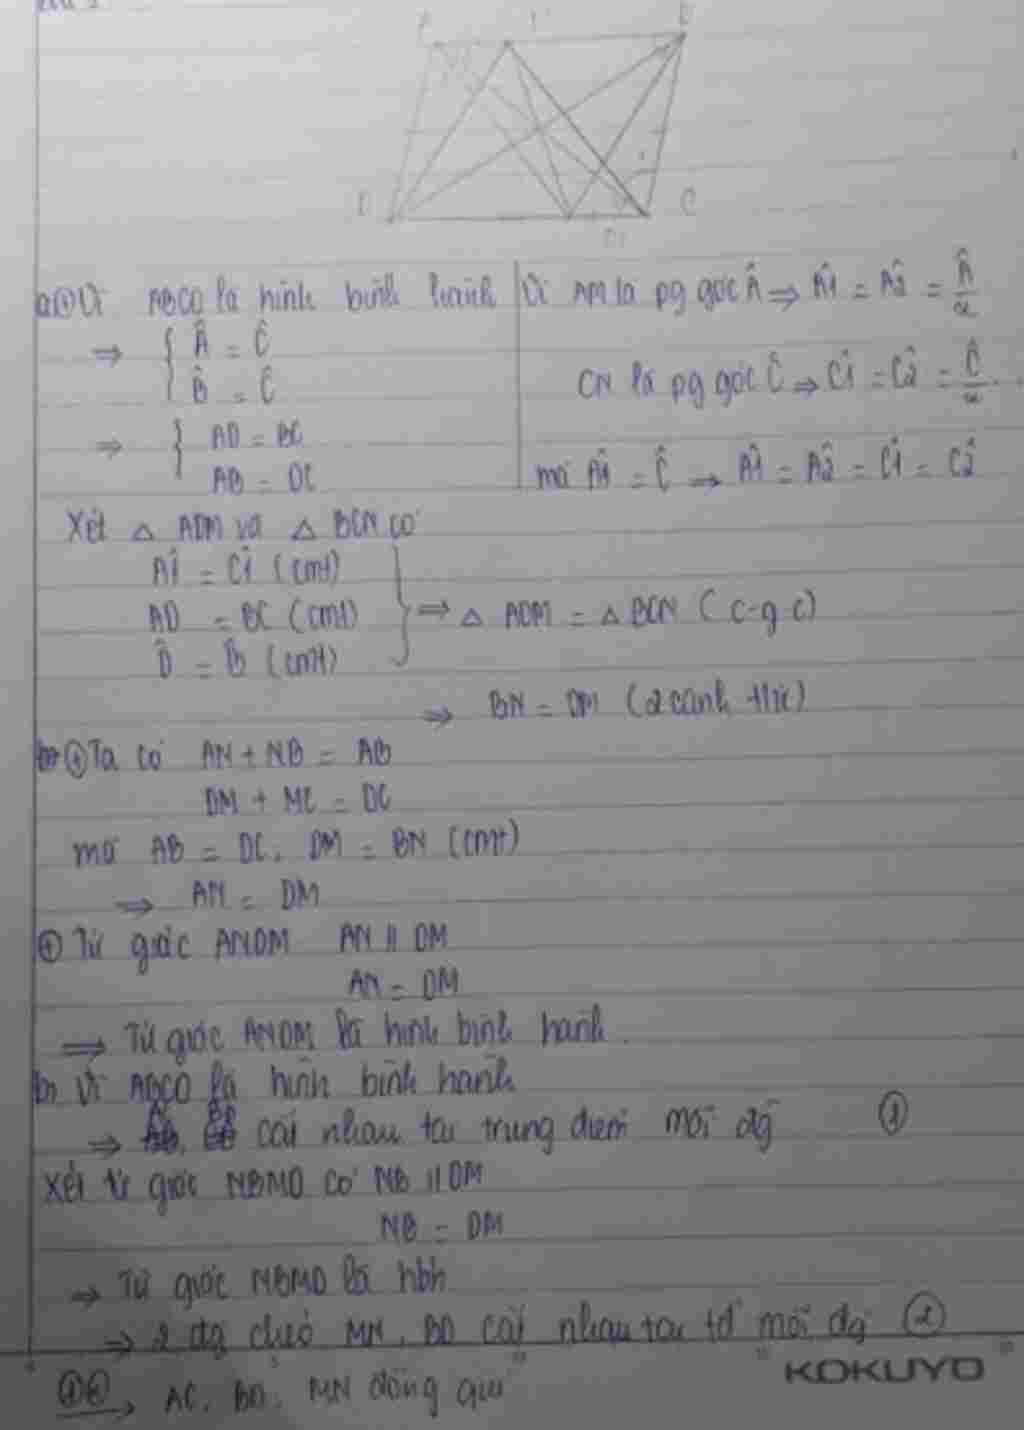 D
C
a) ⊕ Vì ABCD là hình bình hành
⇒ { Â = Ĉ
B̂ = Ĉ
⇒ { AD = BC
AB = DC
Vì AM là pg góc Â ⇒ Â1 = Â2 = Â/2
CN là pg góc Ĉ ⇒ Ĉ1 = Ĉ2 = Ĉ/2
mà Â1 = Ĉ ⇒ Â1 = Â2 = Ĉ1 = Ĉ2
Xét △ ADM và △ BCN có
Â1 = Ĉ1 (cmt)
AD = BC (cmt)
D̂ = B̂ (cmt)
⇒ △ ADM = △ BCN (c-g-c)
⇒ BN = DM (2 cạnh t/ư)
⊕ Ta có AN + NB = AB
DM + MC = DC
mà AB = DC, DM = BN (cmt)
⇒ AN = DM
⊕ Tứ giác ANDM AN // DM
AN = DM
⇒ Tứ giác ANDM là hình bình hành.
b) Vì ABCD là hình bình hành
⇒ AC, BD cắt nhau tại trung điểm mỗi đg ①
Xét tứ giác NBMD có NB // DM
NB = DM
⇒ Tứ giác NBMD là hbh
⇒ 2 đg chéo MN, BD cắt nhau tại tđ mỗi đg ②
①② ⇒ AC, BD, MN đồng qui
KOKUYO